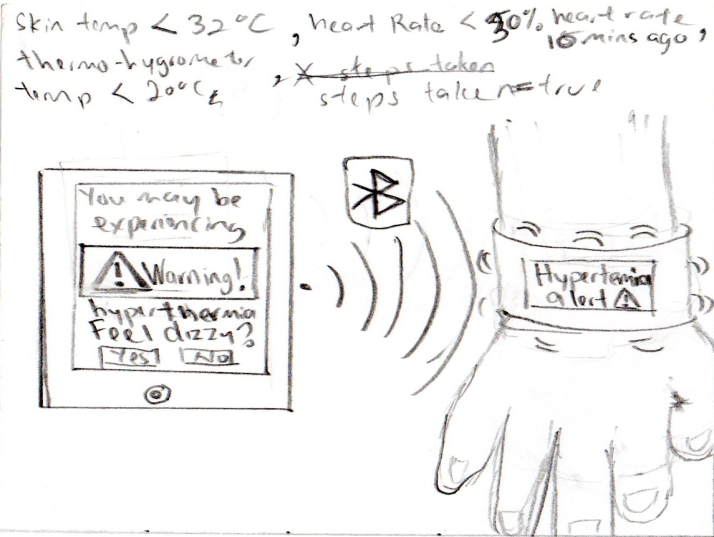 Skin temp < 32°C, heart Rate < 50% heart rate 10 mins ago,
thermo-hygrometer temp < 20°C, X steps taken
steps taken=true
You may be
experiencing
Warning!
hyperthermia
Feel dizzy?
Yes No
Hypertemia
alert